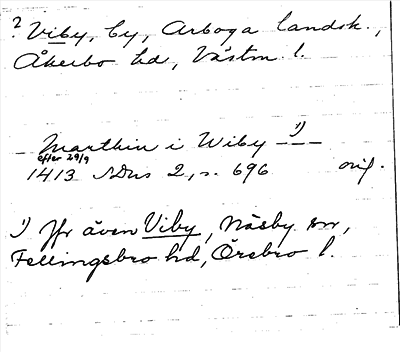 ? Viby, by, Arboga landsk.,
Åkerbo hd, Västm l.
— Marthin i Wiby —¹)—
efter 29/9
1413 SDns 2, s. 696 orig.
¹) Jfr även Viby, Näsby sn,
Fellingsbro hd, Örebro l.